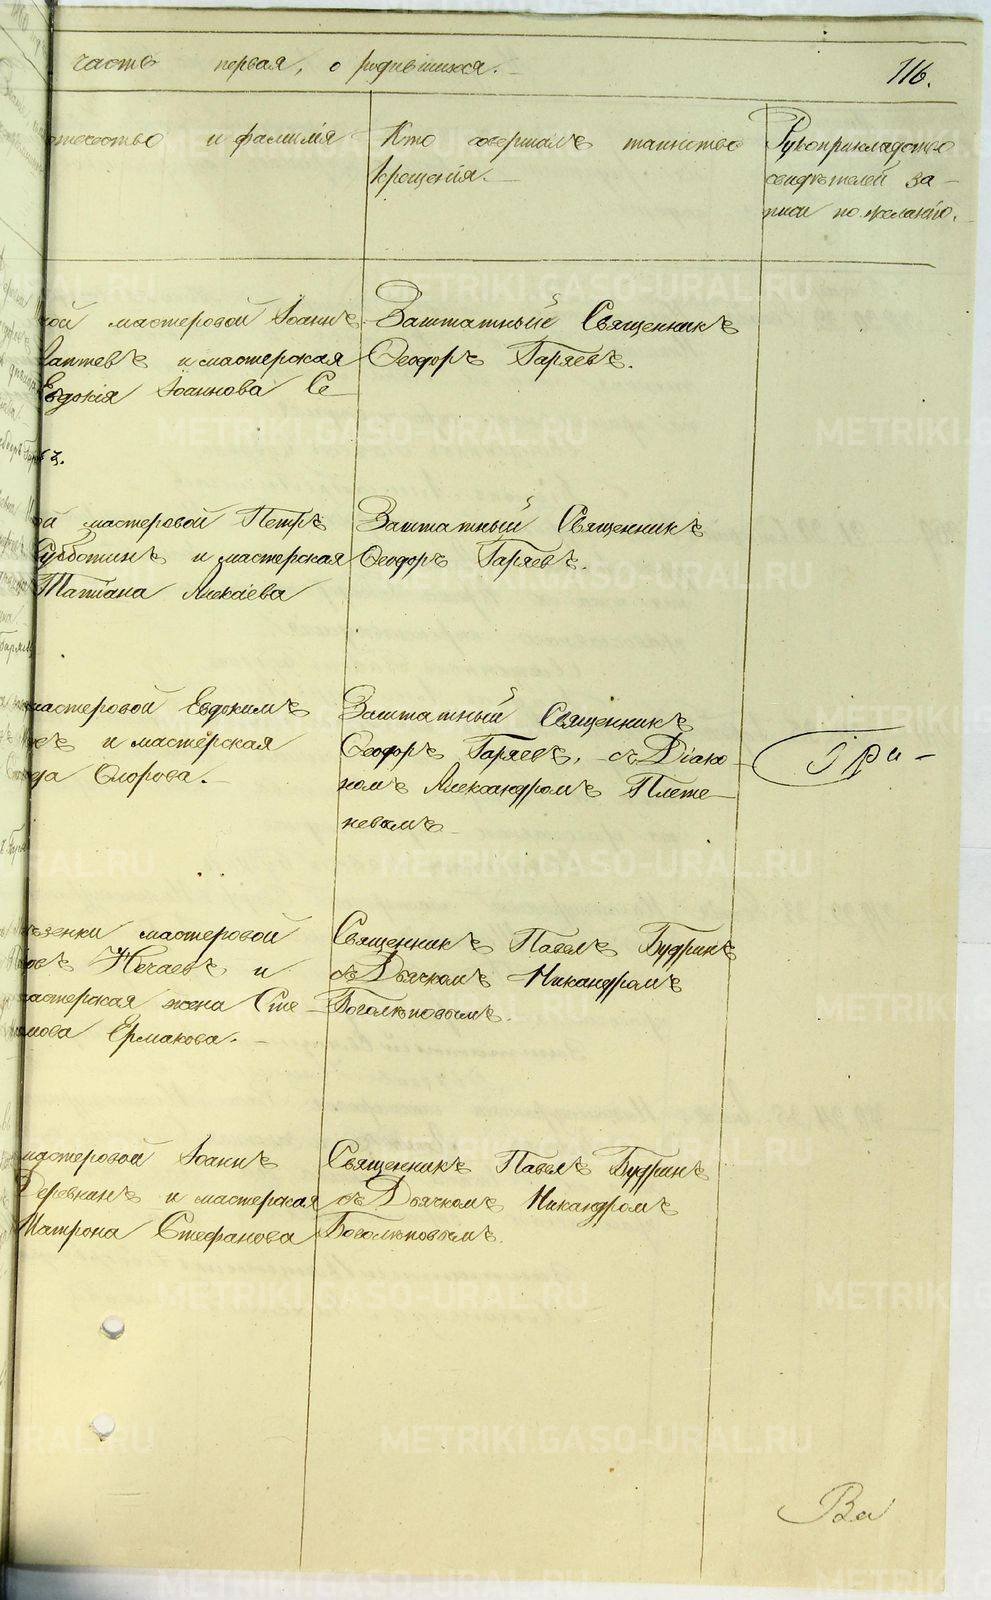 часть первая, о родившихся.
116.
отчество и фамилія
Кто совершалъ таинство
крещенія.
Рукоприкладство
свидѣтелей за-
писи по желанію.
кой мастеровой Іоаннъ
Лаптевъ и мастерская
Евдокія Іоаннова Се-
Заштатный Священникъ
Ѳеодоръ Гаряевъ.
ой мастеровой Петръ
Субботинъ и мастерская
Татіана Алекаева
Заштатный Священникъ
Ѳеодоръ Гаряевъ.
мастеровой Евдокимъ
и мастерская
Ѳлорова.
Заштатный Священникъ
Ѳеодоръ Гаряевъ, съ Діако-
номъ Александромъ Плете-
невымъ
При-
зенки мастеровой
Нечаевъ и
мастерская жена Сте-
Ермакова.
Священникъ Павелъ Будринъ
съ Дьячкомъ Никандромъ
Боголѣповымъ.
мастеровой Іоаннъ
Деревнинъ и мастерская
Матрона Стефанова
Священникъ Павелъ Будринъ
съ Дьячкомъ Никандромъ
Боголѣповымъ.
Ва
METRIKI.GASO-URAL.RU